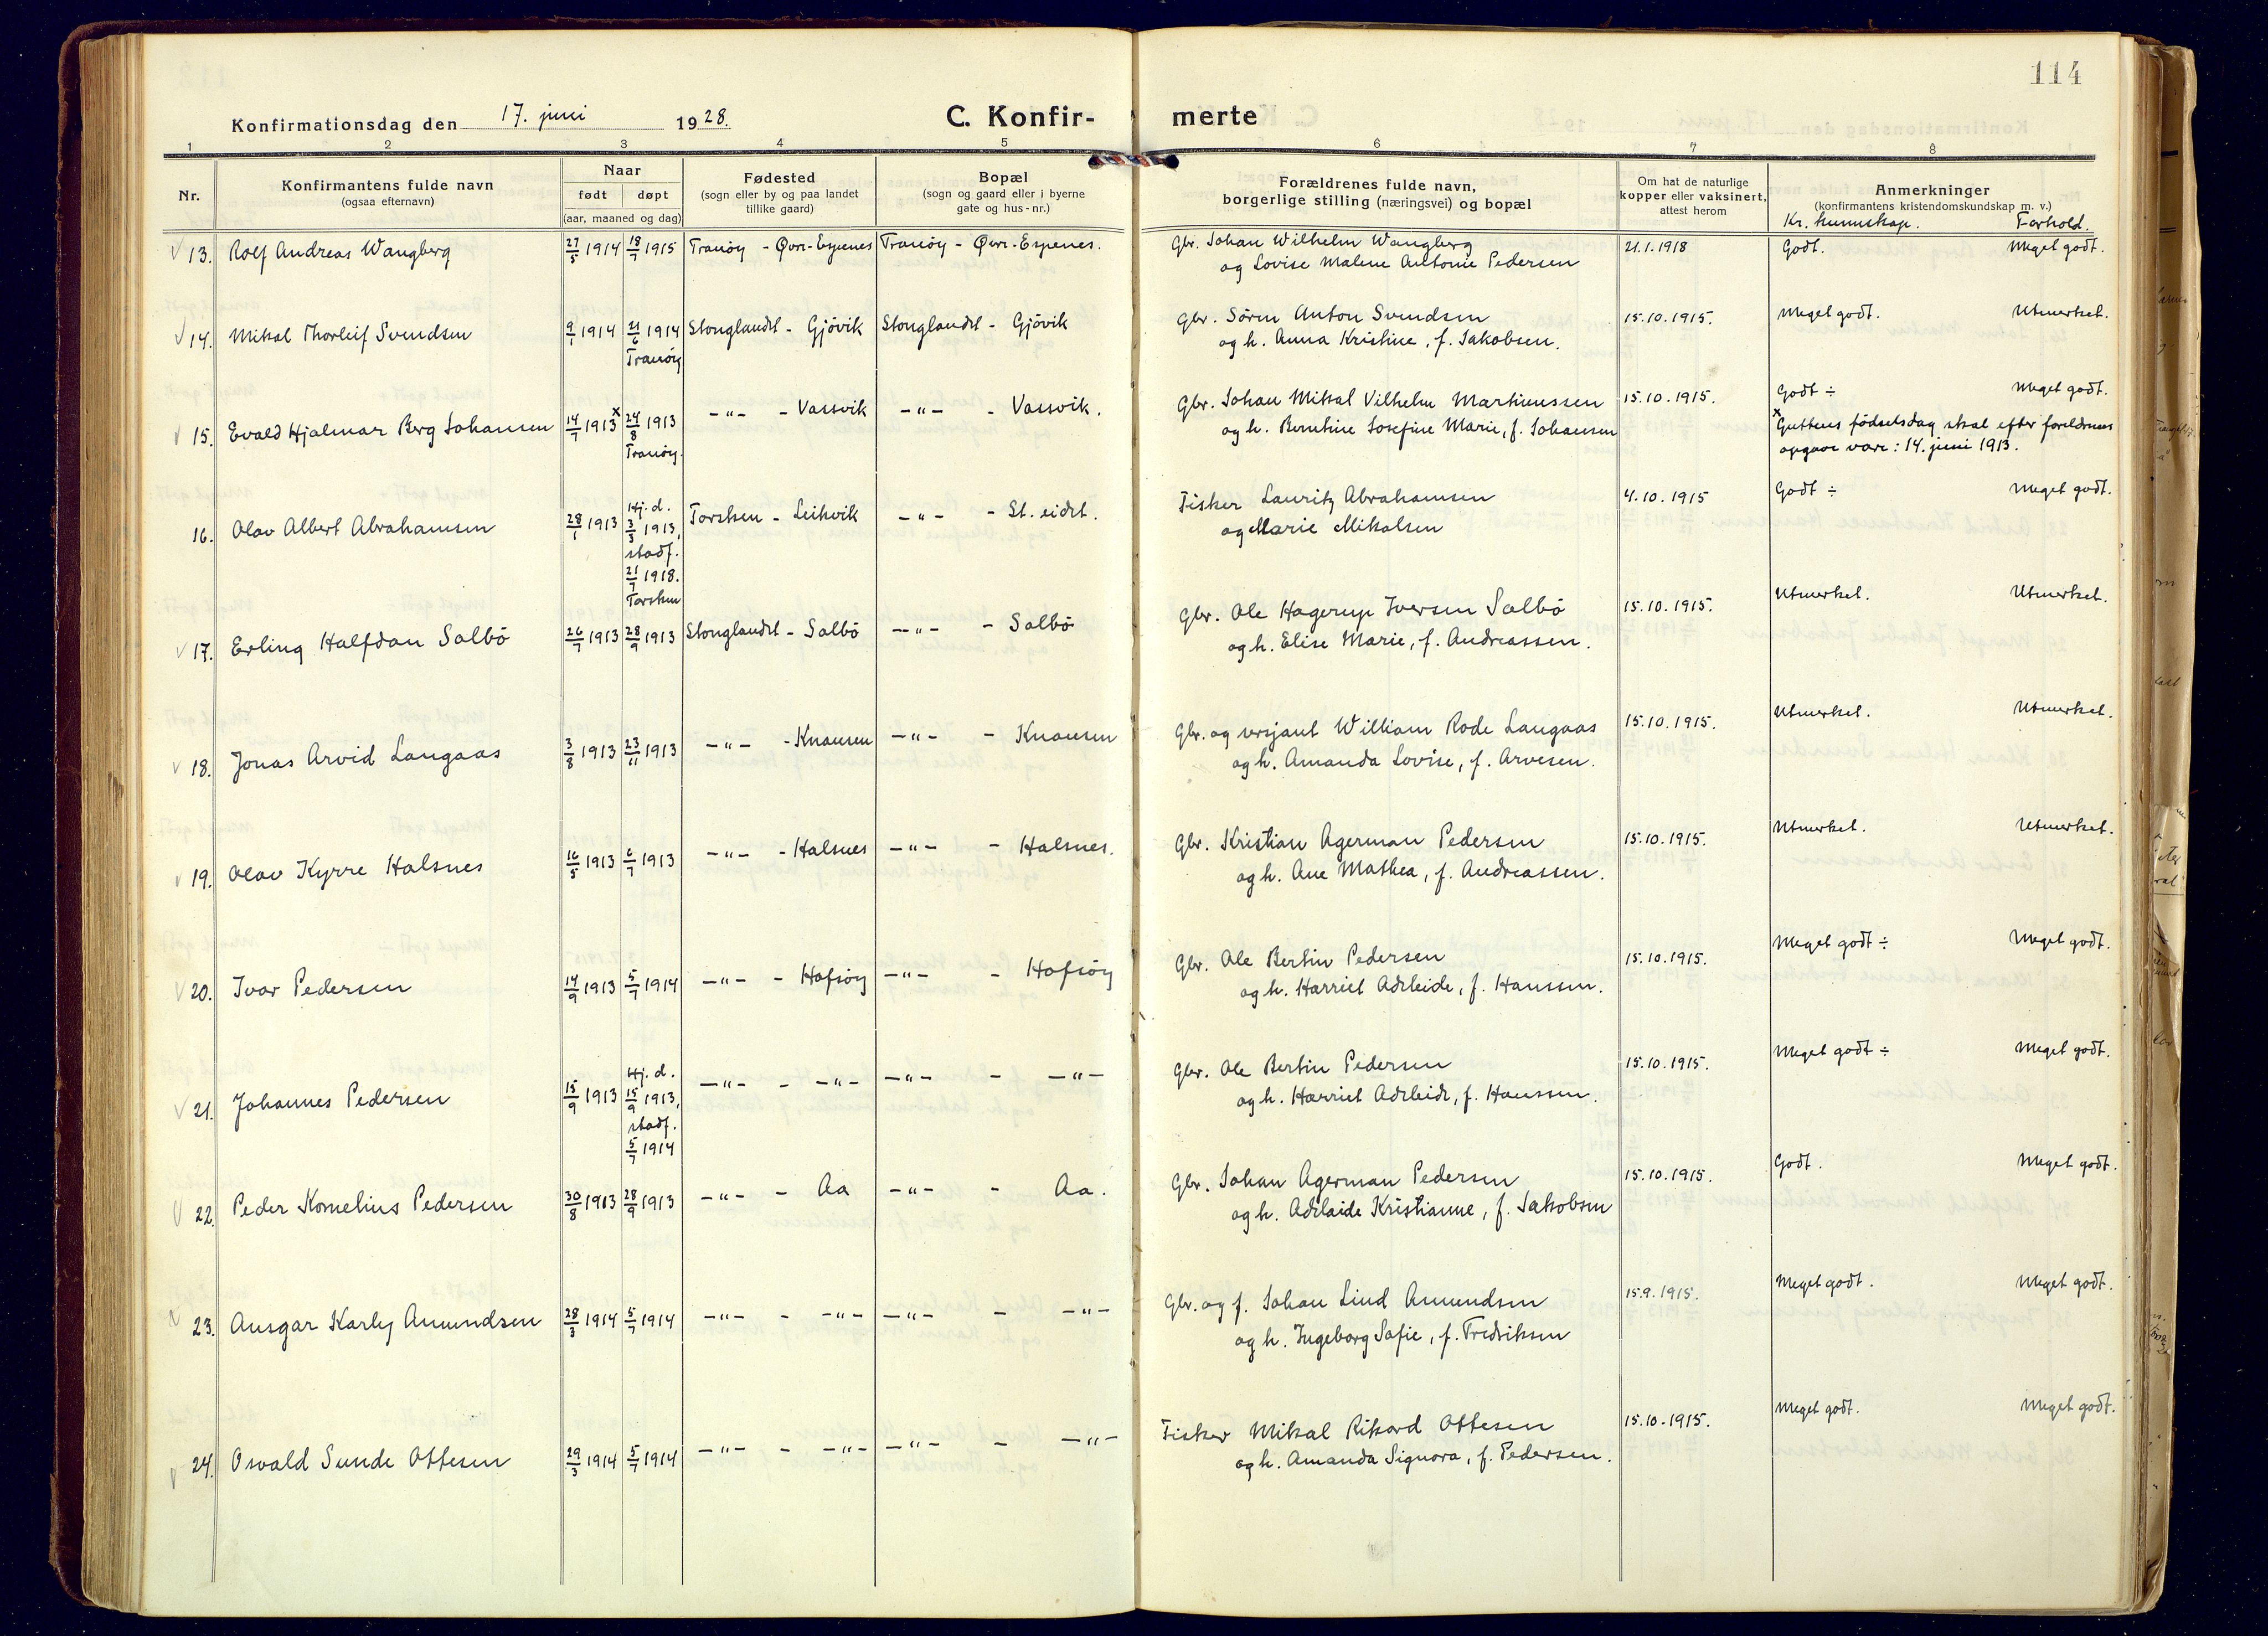 114
Konfirmationsdag den 17. juni 1928.
C. Konfir- merte
1 2 3 4 5 6 7 8
Nr.
Konfirmantens fulde navn
(ogsaa efternavn)
Naar
født døpt
(aar, maaned og dag)
Fødested
(sogn eller by og paa landet
tillike gaard)
Bopæl
(sogn og gaard eller i byerne
gate og hus-nr.)
Forældrenes fulde navn,
borgerlige stilling (næringsvei) og bopæl
Om hat de naturlige
kopper eller vaksinert,
attest herom
Anmerkninger
(konfirmantens kristendomskundskap m. v.)
Kr. kunnskap. Forhold.
13. Rolf Andreas Wangberg 27/5 1914 18/7 1915 Tranöy - Øvre-Espenes Tranöy - Øvre-Espenes. Gbr. Johan Wilhelm Wangberg 21.1.1918 Godt. Meget godt.
og Lovise Malene Antonie Pedersen
14. Mikal Thorleif Svendsen 9/1 1914 21/6 1914 Stonglandet - Gjövik Stonglandet - Gjövik Gbr. Sören Anton Svendsen 15.10.1915. Meget godt. Utmerket.
Tranöy og h. Anna Kristine, f. Jakobsen.
15. Evald Hjalmar Berg Johansen 14/7 1913 x 24/8 1913 -"- - Vassvik -"- - Vassvik. Gbr. Johan Mikal Vilhelm Martinussen 15.10.1915. Godt ÷ Meget godt.
Tranöy. og h. Berntine Josefine Marie, f. Johansen
x Guttens födselsdag skal efter foreldrenes
opgave være: 14. juni 1913.
16. Olav Albert Abrahamsen 28/1 1913 Hj. d. 3/3 1913, Torsken - Leikvik -"- - St. eidet. Fisker Lauritz Abrahamsen 4.10.1915 Godt ÷ Meget godt.
stadf. og Marie Mikalsen
21/7 1918.
Torsken
17. Erling Halfdan Salbö 26/7 1913 28/9 1913 Stonglandet - Salbö -"- - Salbö Gbr. Ole Hagerup Iversen Salbö 15.10.1915. Utmerket. Utmerket.
og h. Elise Marie, f. Andreassen.
18. Jonas Arvid Langaas 3/8 1913 23/11 1913 -"- - Knausen -"- - Knausen Gbr. og versjant William Rode Langaas 15.10.1915. Utmerket. Utmerket.
og h. Amanda Lovise, f. Arvesen.
19. Olav Kyrre Halsnes 16/5 1913 6/7 1913 -"- - Halsnes -"- - Halsnes. Gbr. Kristian Agerman Pedersen 15.10.1915. Utmerket. Utmerket.
og h. Ane Mathea, f. Andreassen.
20. Ivar Pedersen 14/9 1913 5/7 1914 -"- - Hofsöy -"- - Hofsöy Gbr. Ole Bertin Pedersen 15.10.1915. Meget godt ÷ Meget godt.
og h. Harriet Adeleide, f. Hanssen.
21. Johannes Pedersen 15/9 1913 Hj. d. 15/9 1913, -"- - -"- -"- - -"- Gbr. Ole Bertin Pedersen 15.10.1915. Meget godt ÷ Meget godt.
stadf. og h. Harriet Adeleide, f. Hanssen.
5/7 1914
22. Peder Kornelius Pedersen 30/8 1913 28/9 1913 -"- - Aa -"- - Aa. Gbr. Johan Agerman Pedersen 15.10.1915. Godt. Meget godt.
og h. Adelaide Kristianne, f. Jakobsen
23. Ansgar Karly Amundsen 28/3 1914 5/7 1914 -"- - -"- -"- - -"- Gbr. og f. Johan Lind Amundsen 15.9.1915. Meget godt. Meget godt.
og h. Ingeborg Sofie, f. Fredriksen
24. Osvald Sunde Ottesen 29/3 1914 5/7 1914 -"- - -"- -"- - -"- Fisker Mikal Rikard Ottesen 15.10.1915. Meget godt. Meget godt.
og h. Amanda Signora, f. Pedersen.